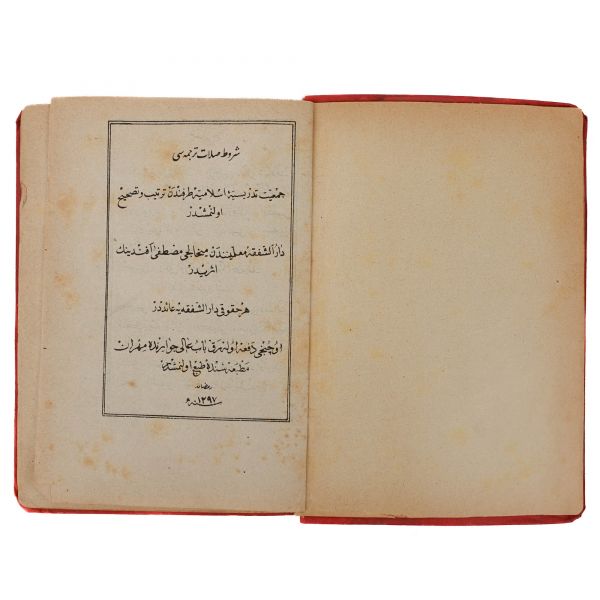 شروط صلات ترجمه‌سی
جمعیت تدریسیهٔ اسلامیه طرفندن ترتیب و تصحیح
اولنمشدر
دار الشفقه معلمیندن میخالجی مصطفی افندینك
اثریدر
هر حقوقی دار الشفقه یه عائددر
اوچنجی دفعه اوله‌رق باب عالی جوارنده مهران
مطبعه سنده طبع اولنمشدر
رمضان
سنه ۱۲۹۷